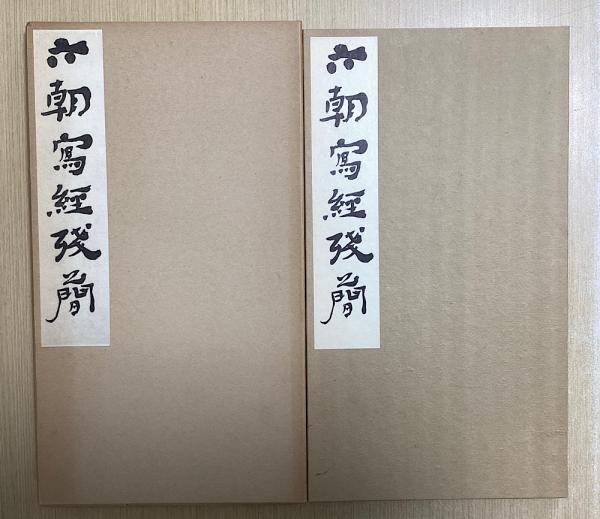 六朝寫經残簡
六朝寫經残簡